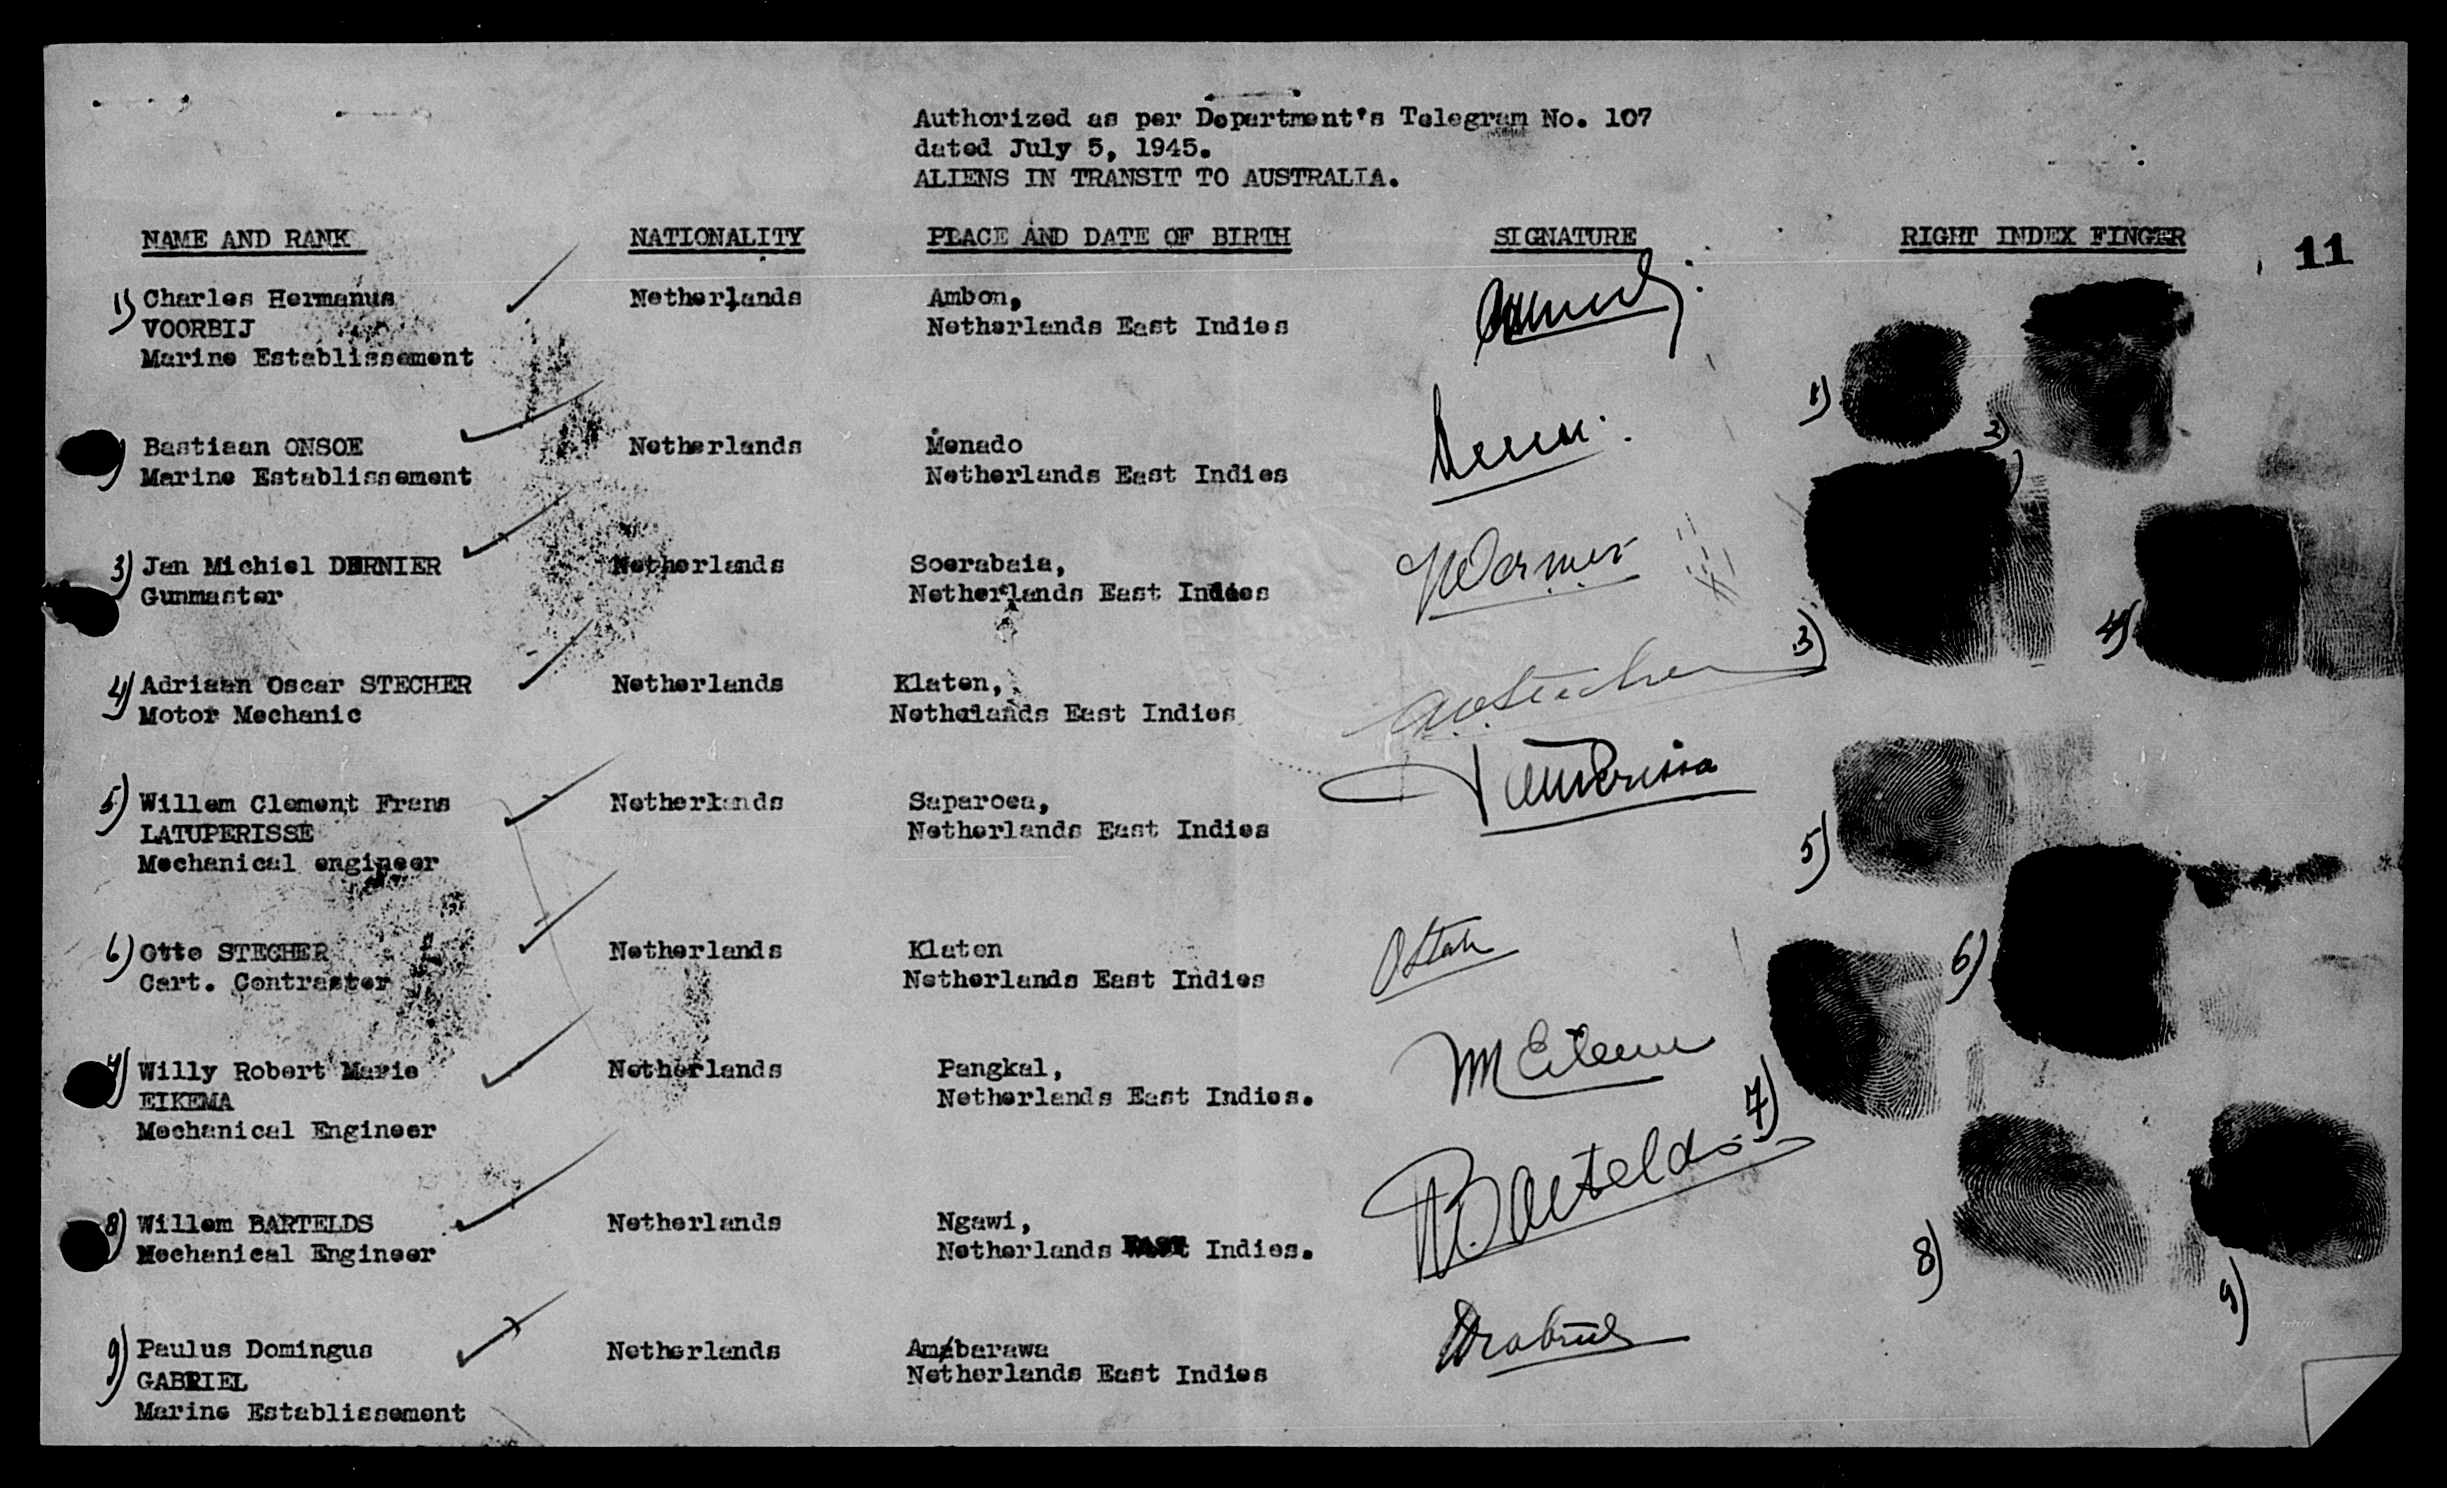 Authorized as per Department's Telegram No. 107
dated July 5, 1945.
ALIENS IN TRANSIT TO AUSTRALIA.
NAME AND RANK NATIONALITY PLACE AND DATE OF BIRTH SIGNATURE RIGHT INDEX FINGER 11
1) Charles Hermanus Netherlands Ambon,
VOORBIJ Netherlands East Indies
Marine Establissement
1)
2)
) Bastiaan ONSOE Netherlands Menado
Marine Establissement Netherlands East Indies
3) Jan Michiel DERNIER Netherlands Soerabaia,
Gunmaster Netherlands East Indies
3)
4)
4) Adriaan Oscar STECHER Netherlands Klaten,
Motor Mechanic Nethelands East Indies
AOStecher
5) Willem Clement Frans Netherlands Saparoea,
LATUPERISSE Netherlands East Indies
Mechanical engineer
5)
6) Otto STECHER Netherlands Klaten
Cart. Contraster Netherlands East Indies
6)
7) Willy Robert Marie Netherlands Pangkal,
EIKEMA Netherlands East Indies.
Mechanical Engineer
7)
8) Willem BARTELDS Netherlands Ngawi,
Mechanical Engineer Netherlands EAST Indies.
W. Bartelds
8)
9)
9) Paulus Domingus Netherlands Ambarawa
GABRIEL Netherlands East Indies
Marine Establissement
Gabriel